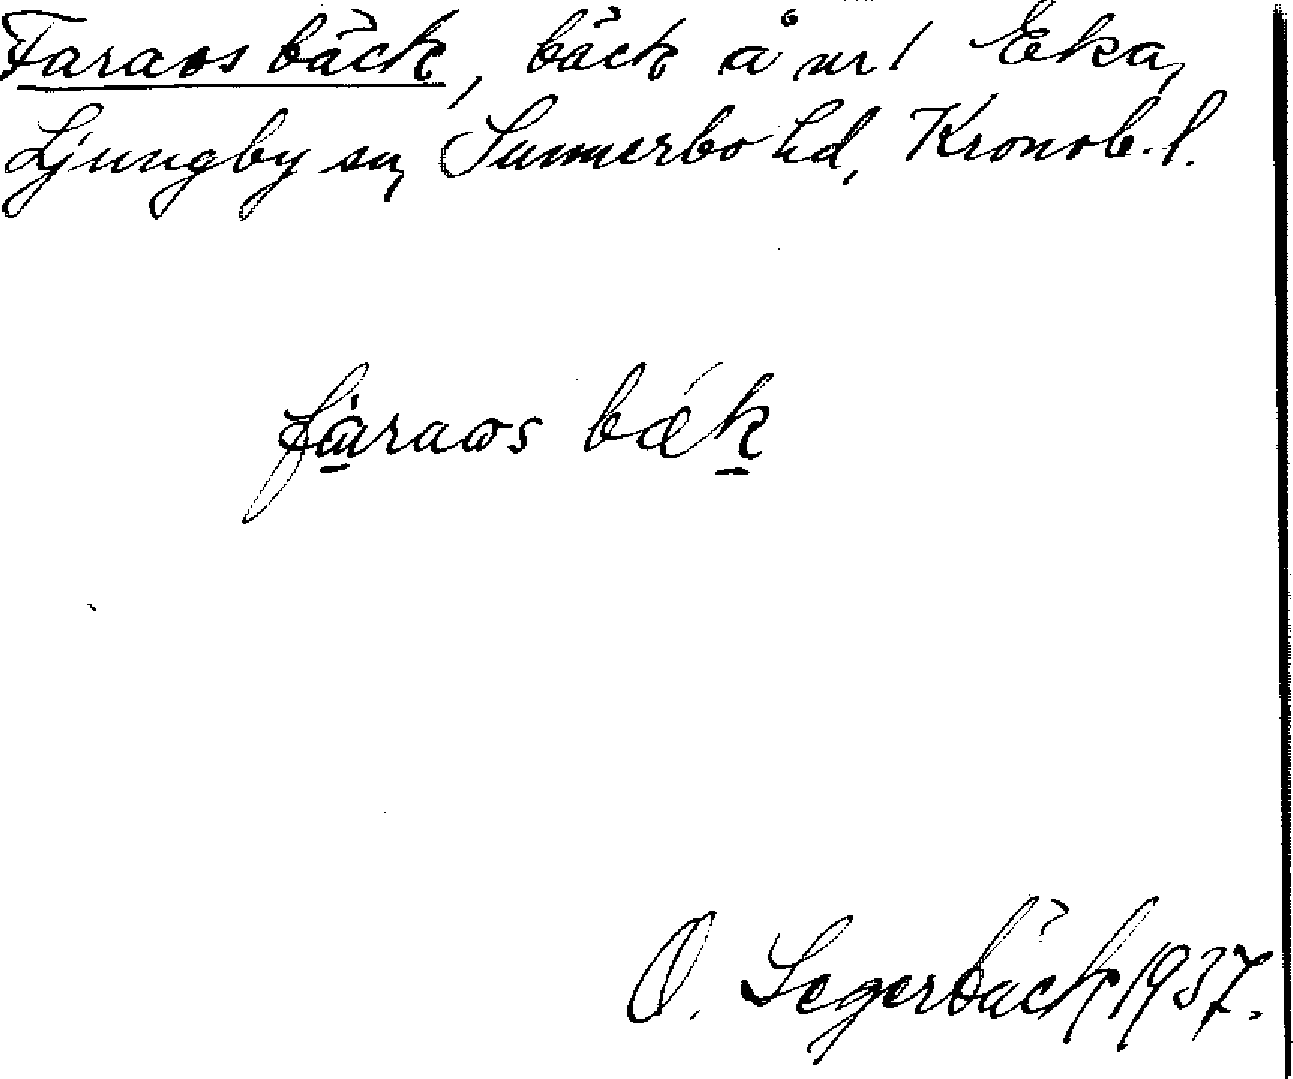 Faraos bäck, bäck å nr 1 Eka,
Ljungby sn, Sunnerbo hd, Kronob. l.
fàraωs bǽk
O. Segerbäck 1937.